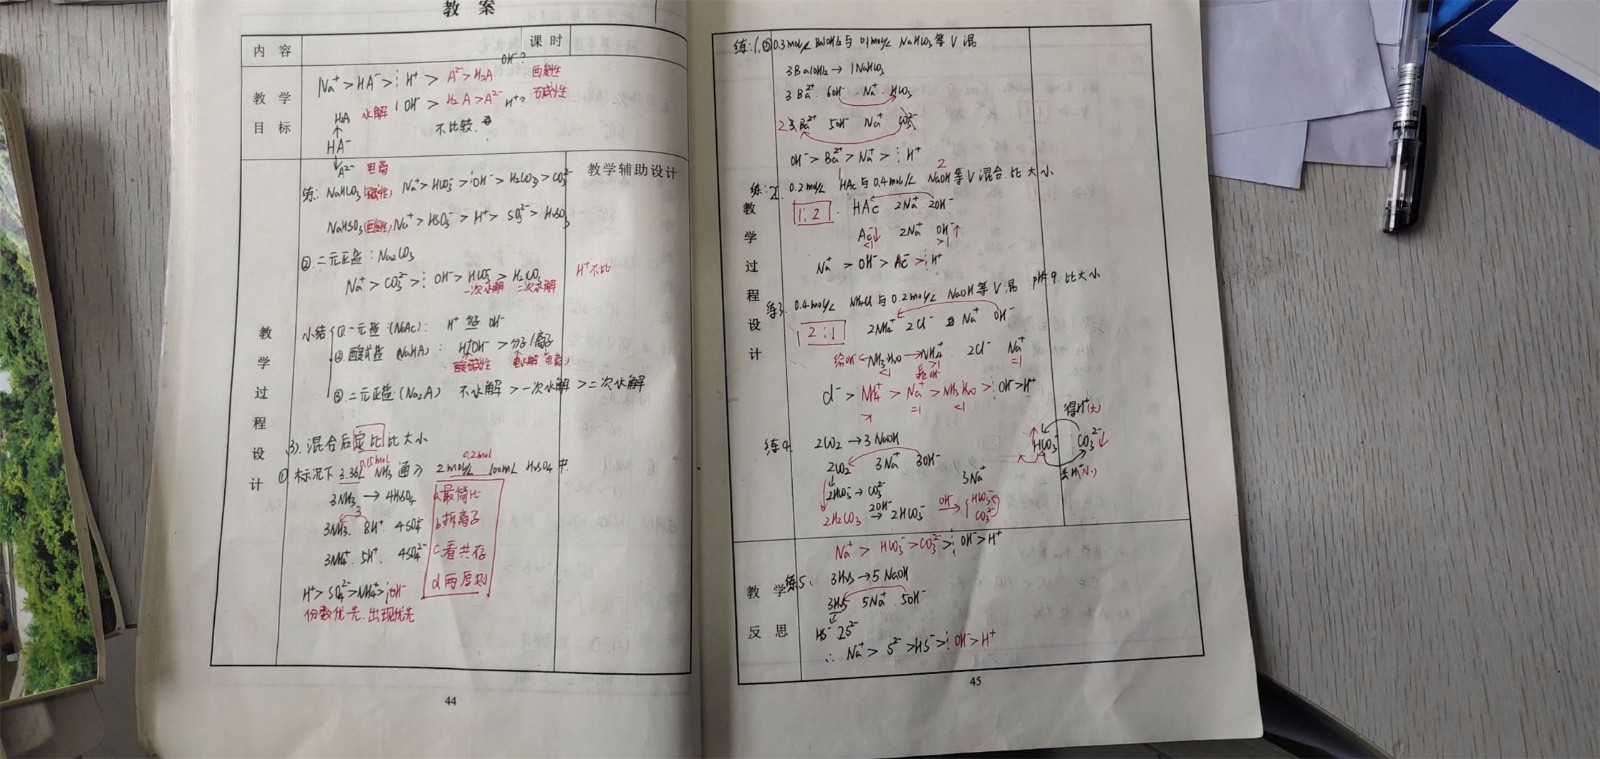 教 案
内 容
课 时
教 学
目 标
Na⁺ > HA⁻ > ¦ H⁺ > A²⁻ > H₂A OH⁻?
水解 ¦ OH⁻ > H₂A > A²⁻ H⁺?
不比较
H₂A
↑
HA⁻
↓
A²⁻ 电离
教学辅助设计
练: NaHCO₃(碱性) Na⁺ > HCO₃⁻ > ¦ OH⁻ > H₂CO₃ > CO₃²⁻
NaHSO₃(酸性) Na⁺ > HSO₃⁻ > H⁺ > SO₃²⁻ > H₂SO₃
②. 二元正盐: Na₂CO₃
Na⁺ > CO₃²⁻ > ¦ OH⁻ > HCO₃⁻ > H₂CO₃ H⁺不比
一次水解 二次水解
教 学 过 程 设 计
小结 ① 一元盐 (NaAc): H⁺ OH⁻
② 酸式盐 (NaHA): H⁺/OH⁻ > 分子/离子
酸碱性 水解 电离
③. 二元正盐: (Na₂A) 不水解 > 一次水解 > 二次水解
3). 混合后定比比大小
0.15mol 0.2mol
① 标况下 3.36L NH₃ 通入 2mol/L 100mL H₂SO₄ 中.
3NH₃ → 4H₂SO₄
3
3NH₃. 8H⁺. 4SO₄²⁻
3NH₄⁺. 5H⁺. 4SO₄²⁻
H⁺ > SO₄²⁻ > NH₄⁺ > ¦ OH⁻
份数优先 出现优先
a 最简比
b 拆离子
c 看共存
d 两原则
44
练: 1. ② 0.3mol/L Ba(OH)₂ 与 0.1mol/L NaHCO₃ 等V混
3Ba(OH)₂ → 1NaHCO₃
3Ba²⁺. 6OH⁻ Na⁺. HCO₃⁻
2 3Ba²⁺ 5OH⁻ Na⁺ CO₃²⁻
OH⁻ > Ba²⁺ > Na⁺ > ¦ H⁺
2
练: 2. 0.2mol/L HAc 与 0.4mol/L NaOH 等V混合. 比大小
1:2 HAc 2Na⁺ 2OH⁻
Ac⁻↓ 2Na⁺ OH⁻↑
<1 >1
Na⁺ > OH⁻ > Ac⁻ > ¦ H⁺
教 学 过 程 设 计
练3. 0.4mol/L NH₄Cl 与 0.2mol/L NaOH 等V混 pH=9. 比大小
2:1 2NH₄⁺ 2Cl⁻ Na⁺ OH⁻
给OH⁻ ← NH₃·H₂O → NH₄⁺ 2Cl⁻ Na⁺
<1 >1 =1
Cl⁻ > NH₄⁺ > Na⁺ > NH₃·H₂O > ¦ OH⁻ > H⁺
>1 =1 <1
练4. 2CO₂ → 3NaOH
2CO₂ 3Na⁺ 3OH⁻
2HCO₃⁻ → CO₃²⁻ 3Na⁺
2H₂CO₃ 2OH⁻ → 2HCO₃⁻ OH⁻ → HCO₃⁻ CO₃²⁻
得H⁺(大)
HCO₃⁻ CO₃²⁻↓
丢H⁺(小)
Na⁺ > HCO₃⁻ > CO₃²⁻ > ¦ OH⁻ > H⁺
教 学
反 思
练5. 3H₂S → 5NaOH
3H₂S 5Na⁺. 5OH⁻
HS⁻ 2S²⁻
∴ Na⁺ > S²⁻ > HS⁻ > ¦ OH⁻ > H⁺
45